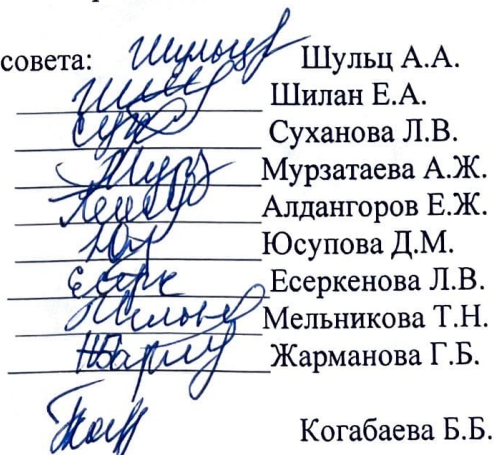 совета: Шульц А.А.
Шилан Е.А.
Суханова Л.В.
Мурзатаева А.Ж.
Алдангоров Е.Ж.
Юсупова Д.М.
Есеркенова Л.В.
Мельникова Т.Н.
Жарманова Г.Б.
Когабаева Б.Б.